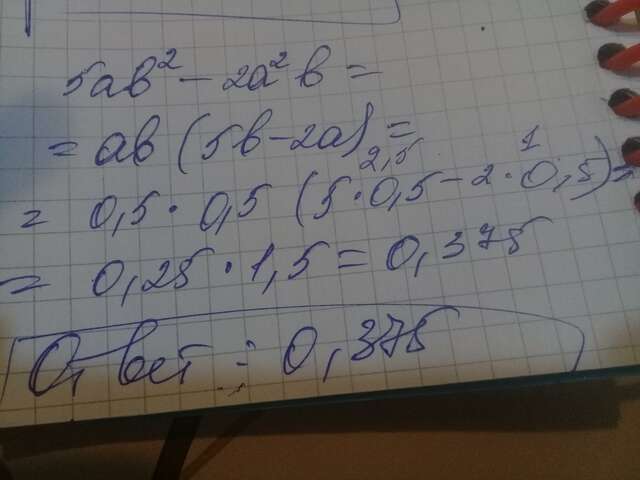 5ab² - 2a²b =
= ab (5b - 2a) =
2,5 1
= 0,5 · 0,5 (5 · 0,5 - 2 · 0,5) =
= 0,25 · 1,5 = 0,375
Ответ : 0,375